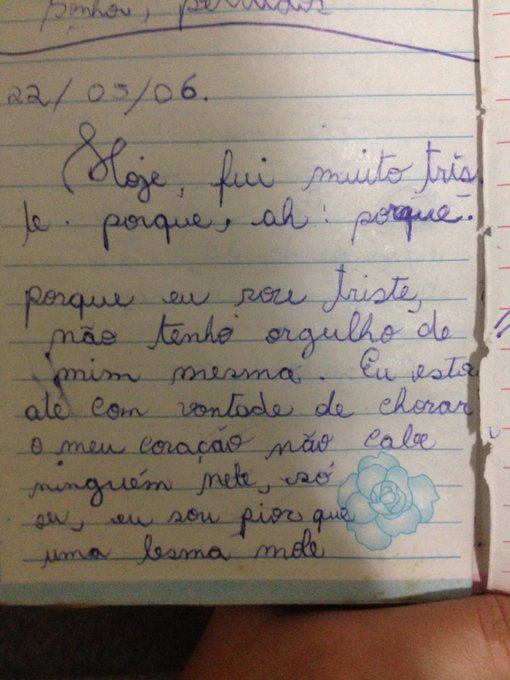 sonhos, perdidos
22/05/06.
Hoje, fui muito tris
te. porque, ah! porque.
porque eu sou triste,
não tenho orgulho de
mim mesma. Eu esto
até com vontade de chorar
o meu coração não cabe
ninguém nele, só
eu, eu sou pior que
uma lesma mole